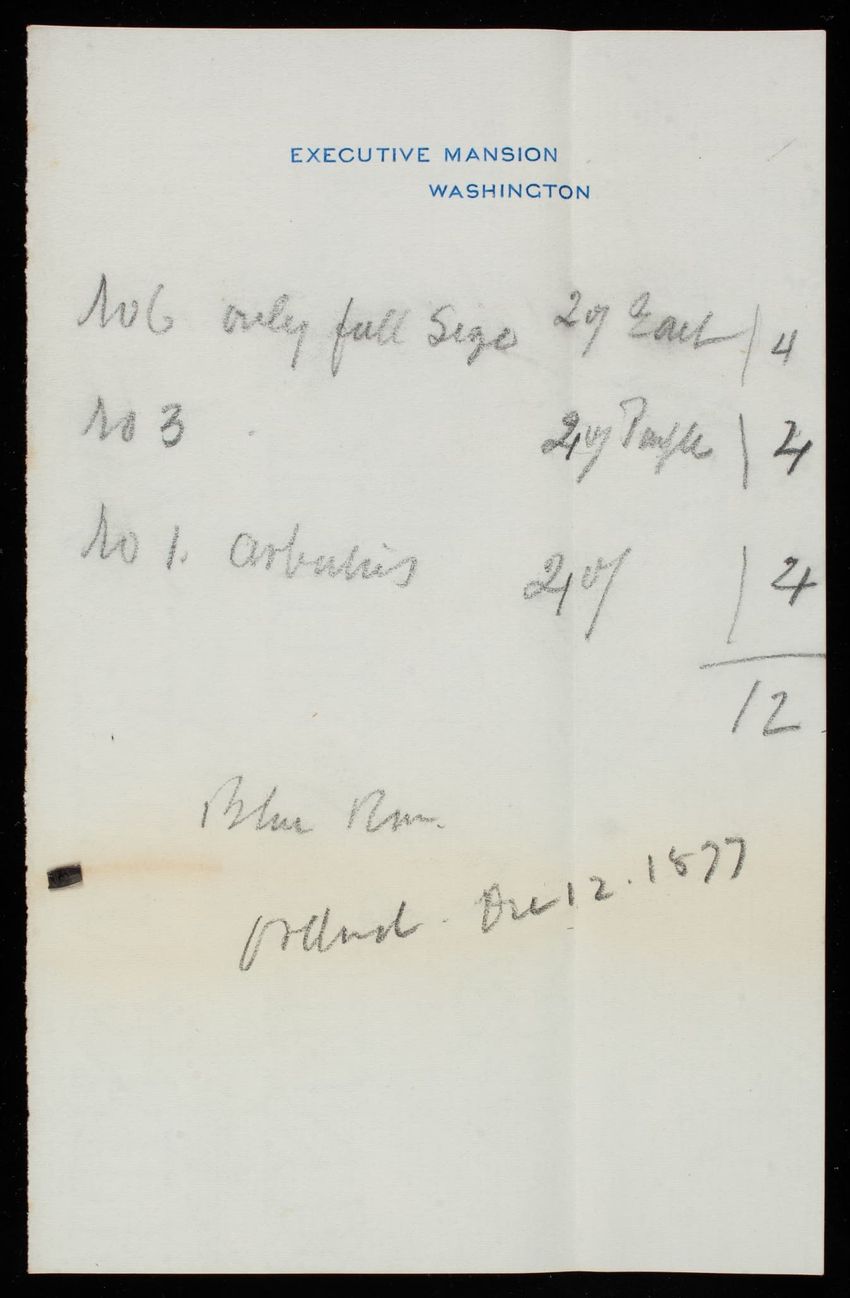 EXECUTIVE MANSION
WASHINGTON
No 6 only full Size 2 of Each | 4
No 3 2 of Purple | 4
No 1. arbutus 2 of | 4
12
Blue Rm.
Dec 12. 1877